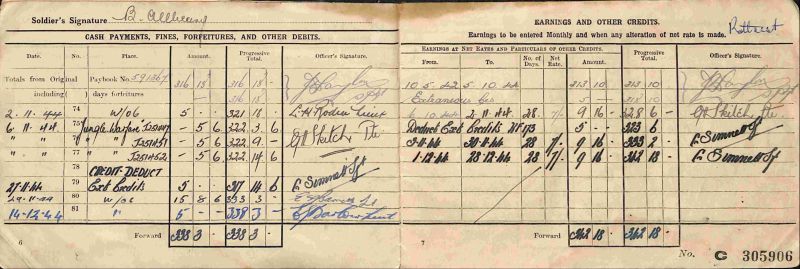 Soldier's Signature B.
CASH PAYMENTS, FINES, FORFEITURES, AND OTHER DEBITS.
Date. Particulars. Amount. Progressive Total. Officer's Signature.
Totals from Original Paybook No. 591267 316 18 316 18
including( ) days forfeitures
2.11.44 74 W/06 5 - - 321 18 -
6.11.44 75 Jungle Warfare - 5 6 322 3 6
" " " 76 " J251451 - 5 6 322 9 -
" " " 77 " J251452 - 5 6 322 14 6
78 CREDIT DEDUCT
27-11-44 79 Ext Credits 5 - - 317 14 6 Simnett
29-11-44 80 W/06 15 8 6 333 3 -
14-12-44 81 " 5 - - 338 3 -
Forward 338 3 - 338 3 -
6
EARNINGS AND OTHER CREDITS.
Earnings to be entered Monthly and when any alteration of net rate is made.
EARNINGS AT NET RATES AND PARTICULARS OF OTHER CREDITS.
From. To. No. of Days. Net Rate. Amount. Progressive Total. Officer's Signature.
10.5.42 5.10.44 313 10 313 10
5 - 318 10
10.44 2.11.44 28 7/- 9 16 328 6 Sketch
Deduct Ext Credits 5 - 323 6
3-11-44 30-11-44 28 7/- 9 16 333 2 Simnett
1-12-44 28-12-44 28 7/- 9 16 342 18 Simnett
Forward 342 18 - 342 18 -
7
No. C 305906